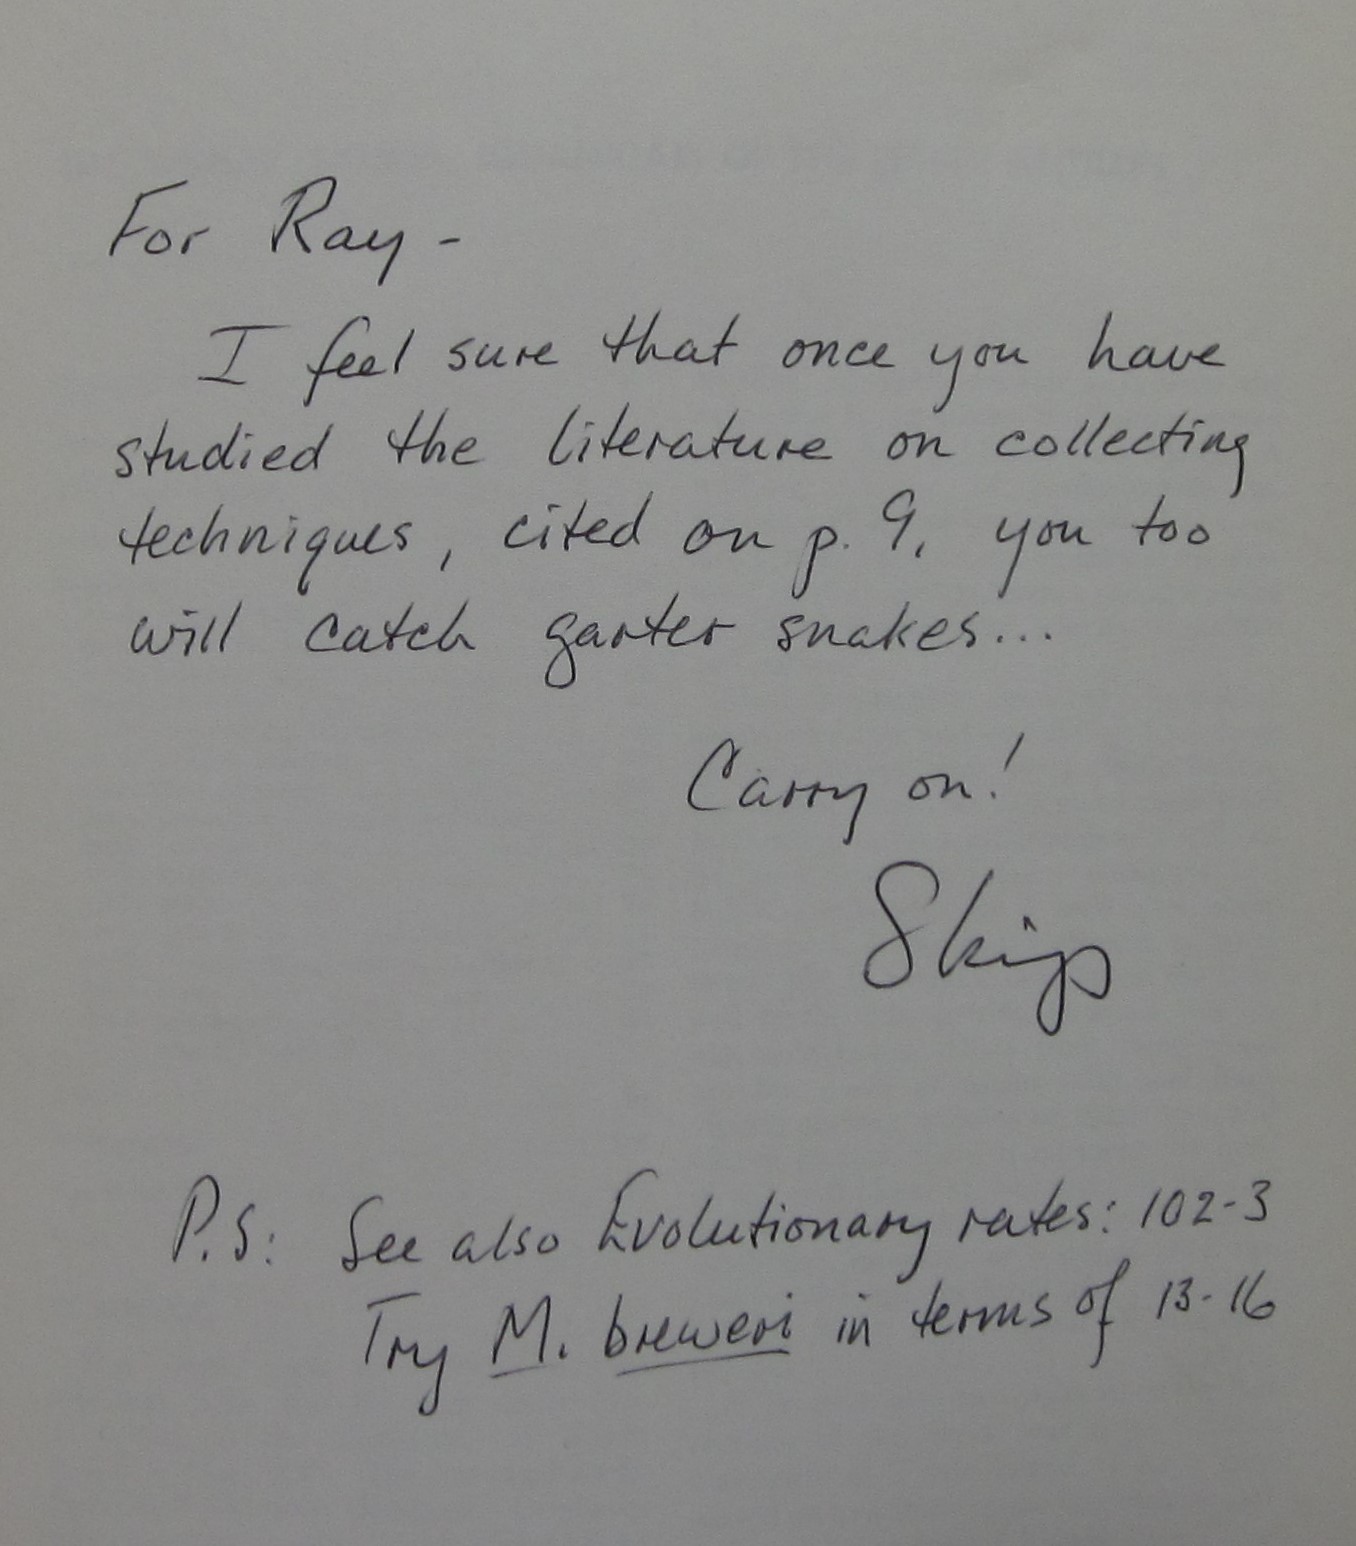 For Ray -
I feel sure that once you have
studied the literature on collecting
techniques, cited on p. 9, you too
will catch garter snakes...
Carry on!
Skip
P.S: See also Evolutionary rates: 102-3
Try M. breweri in terms of 13-16